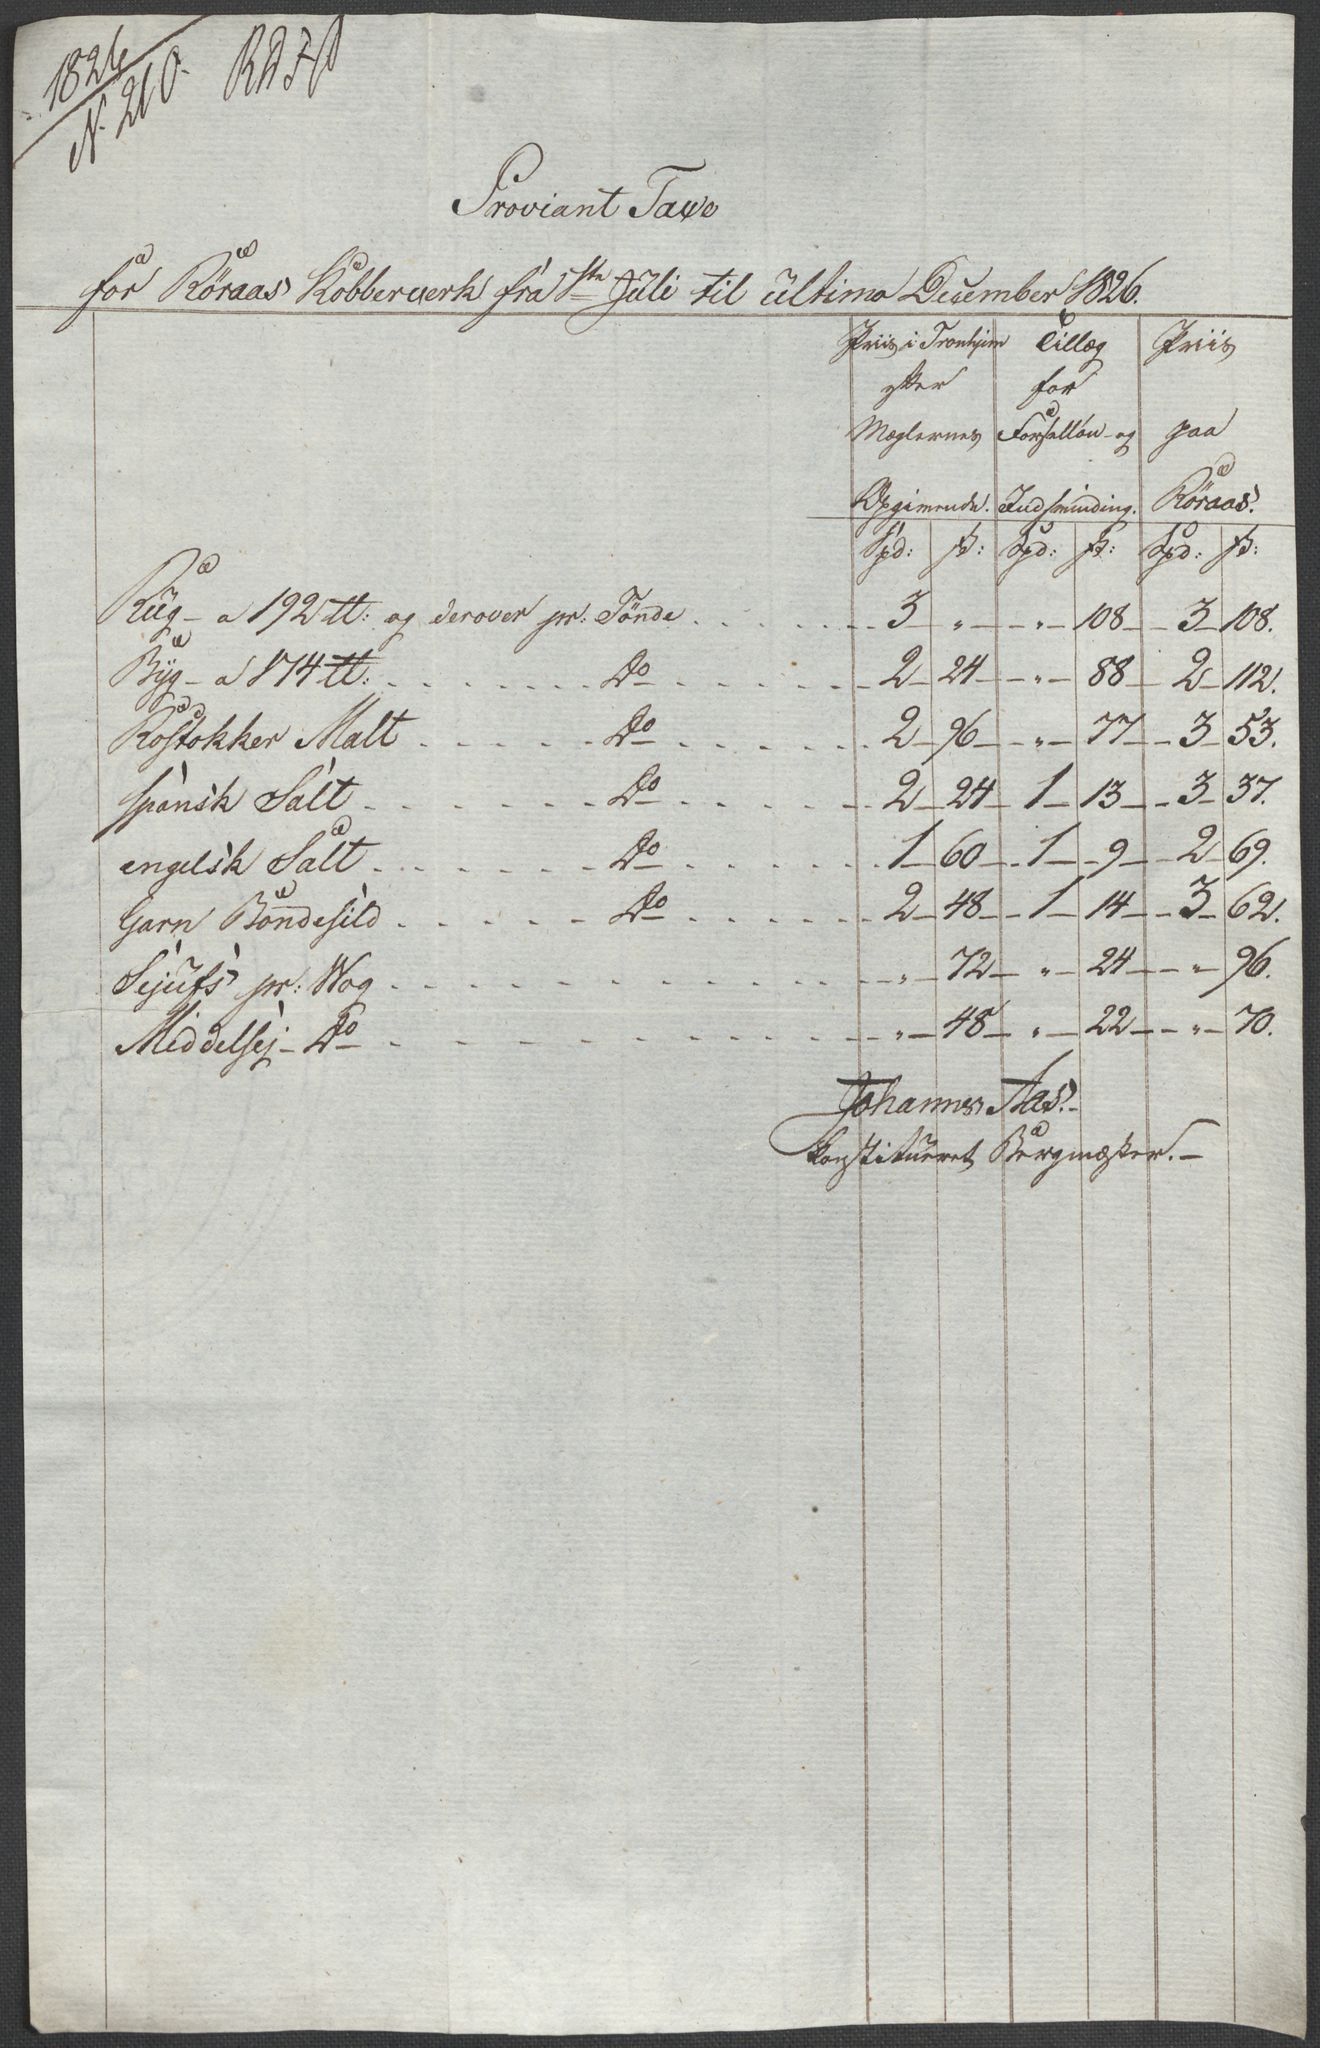 1826
N. 210. RA FP
Proviant Taxe
for Röraas Kobberverk fra 1ste Juli til ultimo December 1826.
Priis i Tronhjem Tillæg Priis
efter for
Mæglernes Forselløn og paa
Opgivende. Indsvinding. Röraas.
Spd: ß: Spd: ß: Spd: ß:
Rug - a 192 tt: og derover pr: Tönde 3 " " 108 3 108.
Byg - a 174 tt: Do 2 24 " 88 2 112.
Rostokker Malt Do 2 96 " 77 3 53.
spansk Salt Do 2 24 1 13 3 37.
engelsk Salt Do 1 60 1 9 2 69.
Garn Bondesild Do 2 48 1 14 3 62.
Sejufs pr: Wog " 72 " 24 " 96.
Middelsej - Do " 48 " 22 " 70.
Johannes Aas.
konstitueret Bergmester.